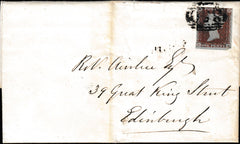 Robt. Ainslie Esqr.
39 Great King Street
Edinburgh